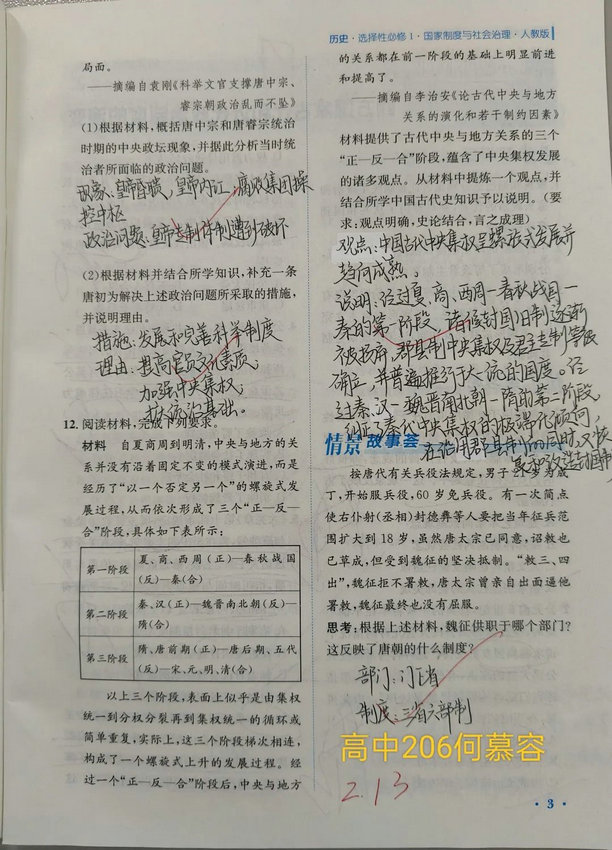 历史·选择性必修1·国家制度与社会治理·人教版
局面。
——摘编自袁刚《科举文官支撑唐中宗、
睿宗朝政治乱而不坠》
(1)根据材料,概括唐中宗和唐睿宗统治
时期的中央政坛现象,并据此分析当时统
治者所面临的政治问题。
现象:皇帝昏聩,皇帝内江,腐败集团操
控中枢
政治问题:皇帝专制体制遭到破坏
(2)根据材料并结合所学知识,补充一条
唐初为解决上述政治问题所采取的措施,
并说明理由。
措施:发展和完善科举制度
理由:提高官员文化素质,
加强中央集权,
扩大统治基础。
12. 阅读材料,完成下列要求。
材料 自夏商周到明清,中央与地方的关
系并没有沿着固定不变的模式演进,而是
经历了“以一个否定另一个”的螺旋式发
展过程,从而依次形成了三个“正—反—
合”阶段,具体如下表所示:
第一阶段 夏、商、西周(正)—春秋战国
(反)—秦(合)
第二阶段 秦、汉(正)—魏晋南北朝(反)—
隋(合)
第三阶段 隋、唐前期(正)—唐后期、五代
(反)—宋、元、明、清(合)
以上三个阶段,表面上似乎是由集权
统一到分权分裂再到集权统一的循环或
简单重复,实际上,这三个阶段梯次相连,
构成了一个螺旋式上升的发展过程。经
过一个“正—反—合”阶段后,中央与地方
的关系都在前一阶段的基础上明显前进
和提高了。
——摘编自李治安《论古代中央与地方
关系的演化和若干制约因素》
材料提供了古代中央与地方关系的三个
“正—反—合”阶段,蕴含了中央集权发展
的诸多观点。从材料中提炼一个观点,并
结合所学中国古代史知识予以说明。(要
求:观点明确,史论结合,言之成理)
观点:中国古代中央集权呈螺旋式发展并
趋向成熟。
说明:经过夏、商、西周—春秋战国—
秦的第一阶段,诸侯封国旧制逐渐
被扬弃,郡县制中央集权及君主专制等级
确立,并普遍推行于大一流的国度。经
过秦、汉—魏晋南北朝—隋的第二阶段,
纠正了秦代中央集权的极端化倾向,
在沿用郡县制的同时,又
情景故事荟
按唐代有关兵役法规定,男子21岁为成
丁,开始服兵役,60岁免兵役。有一次简点
使右仆射(丞相)封德彝等人要把当年征兵范
围扩大到18岁,虽然唐太宗已同意,诏敕也
已草成,但受到魏征的坚决抵制。“敕三、四
出”,魏征拒不署敕,唐太宗曾亲自出面逼他
署敕,魏征最终也没有屈服。
思考:根据上述材料,魏征供职于哪个部门?
这反映了唐朝的什么制度?
部门:门下省
制度:三省六部制
高中206何慕容
2.13
·3·